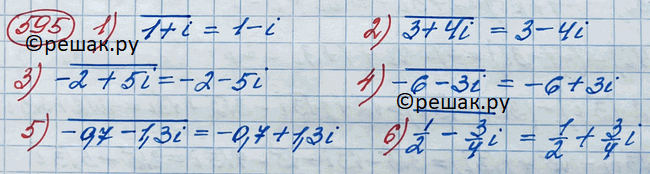 595 1) \overline{1+i} = 1-i 2) \overline{3+4i} = 3-4i
©решак.ру
3) \overline{-2+5i} = -2-5i 4) \overline{-6-3i} = -6+3i
©решак.ру
5) \overline{-0,7-1,3i} = -0,7+1,3i 6) \overline{\frac{1}{2}-\frac{3}{4}i} = \frac{1}{2}+\frac{3}{4}i